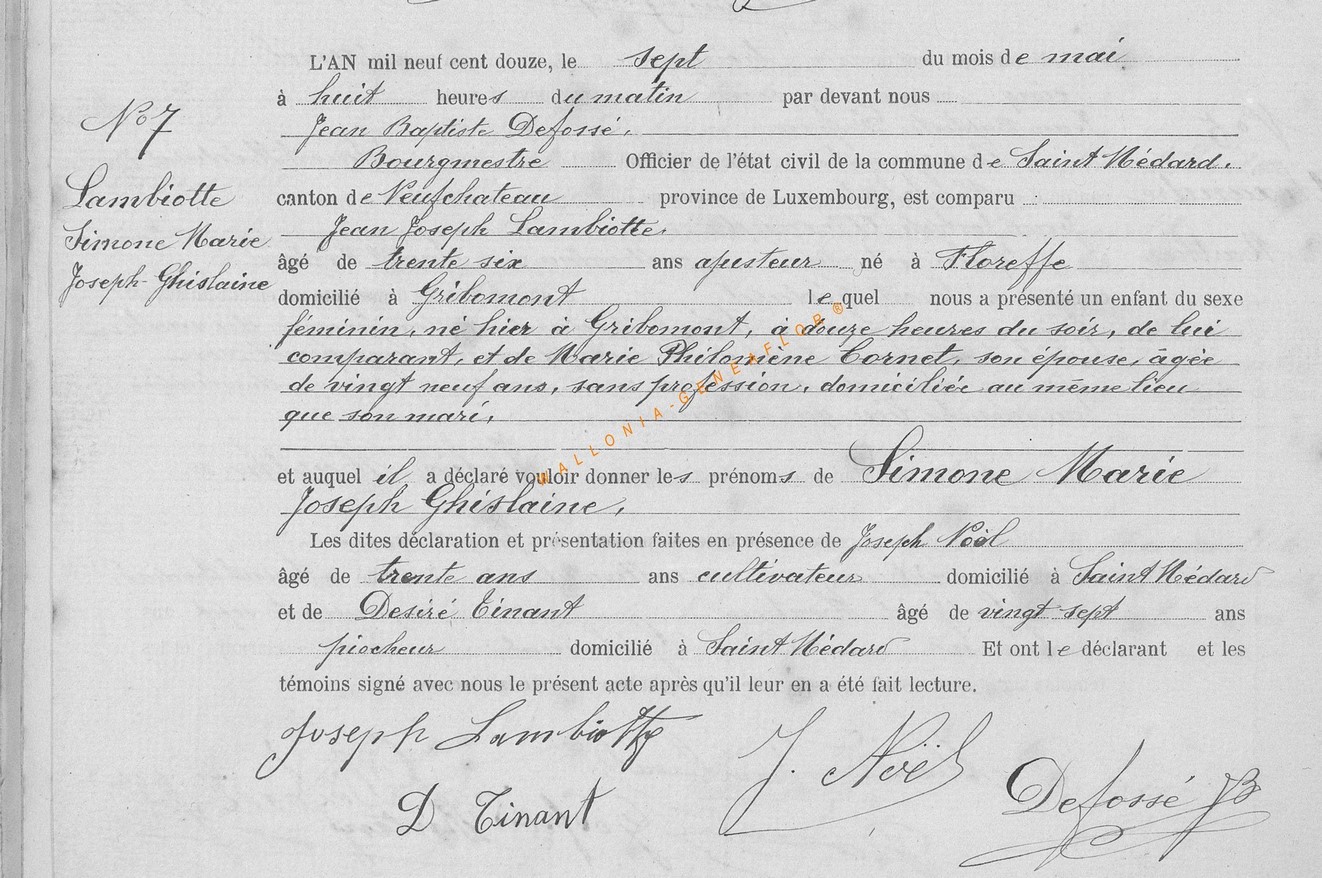 L'AN mil neuf cent douze, le sept du mois de mai
à huit heures du matin par devant nous
Jean Baptiste Defossé.
Bourgmestre Officier de l'état civil de la commune de Saint Médard.
canton de Neufchateau province de Luxembourg, est comparu
Jean Joseph Lambiotte.
âgé de trente six ans ajusteur né à Floreffe
domicilié à Gribomont lequel nous a présenté un enfant du sexe
féminin, né hier à Gribomont, à douze heures du soir, de lui
comparant, et de Marie Philomène Cornet, son épouse, âgée
de vingt neuf ans, sans profession, domiciliée au même lieu
que son mari.
et auquel il a déclaré vouloir donner les prénoms de Simone Marie
Joseph Ghislaine.
Les dites déclaration et présentation faites en présence de Joseph Noël
âgé de trente ans ans cultivateur domicilié à Saint Médard
et de Desiré Tinant âgé de vingt sept ans
piocheur domicilié à Saint Médard Et ont le déclarant et les
témoins signé avec nous le présent acte après qu'il leur en a été fait lecture.
Joseph Lambiotte
J. Noël
D Tinant
Defossé JB
No 7
Lambiotte
Simone Marie
Joseph-Ghislaine
WALLONIA-GENEAFLOR®